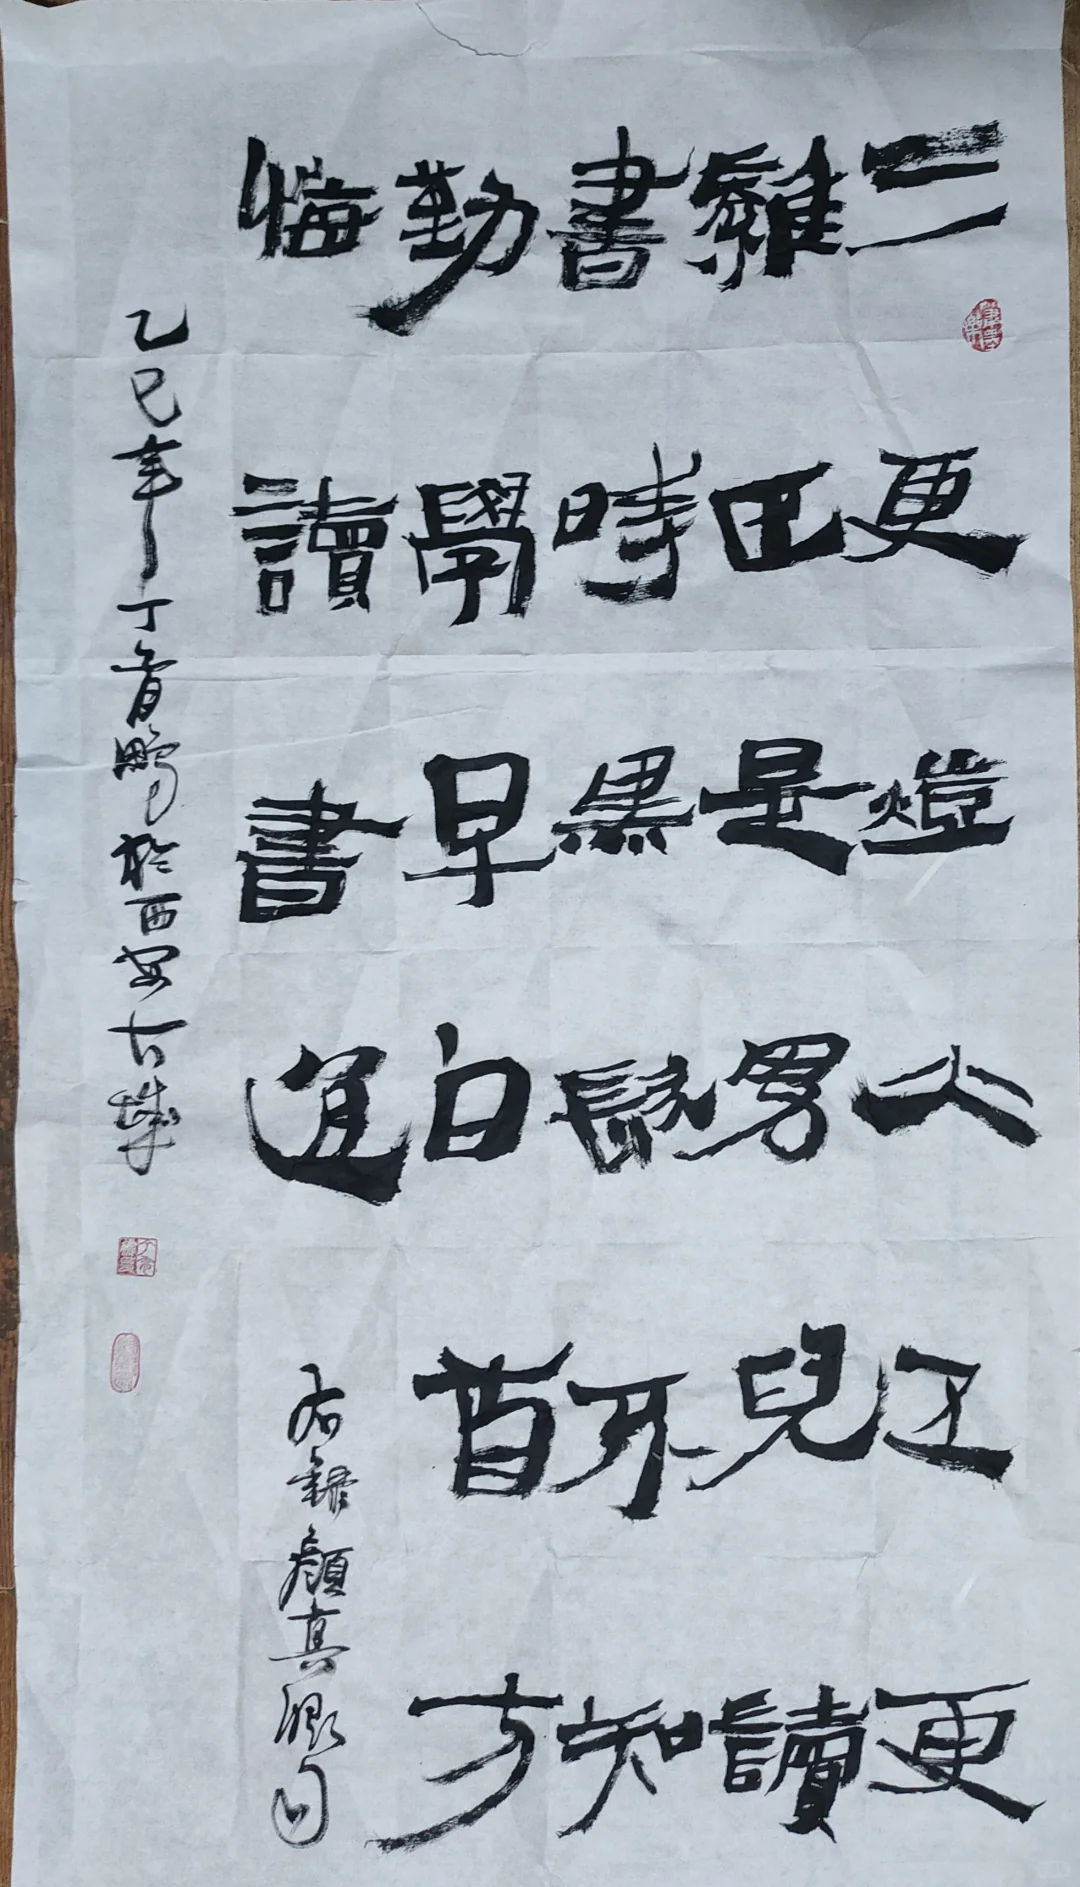 三更燈火五更
雞正是男兒讀
書時黑髮不知
勤學早白首方
悔讀書遲
右錄顏真卿句
乙巳年丁育鵬於西安古城